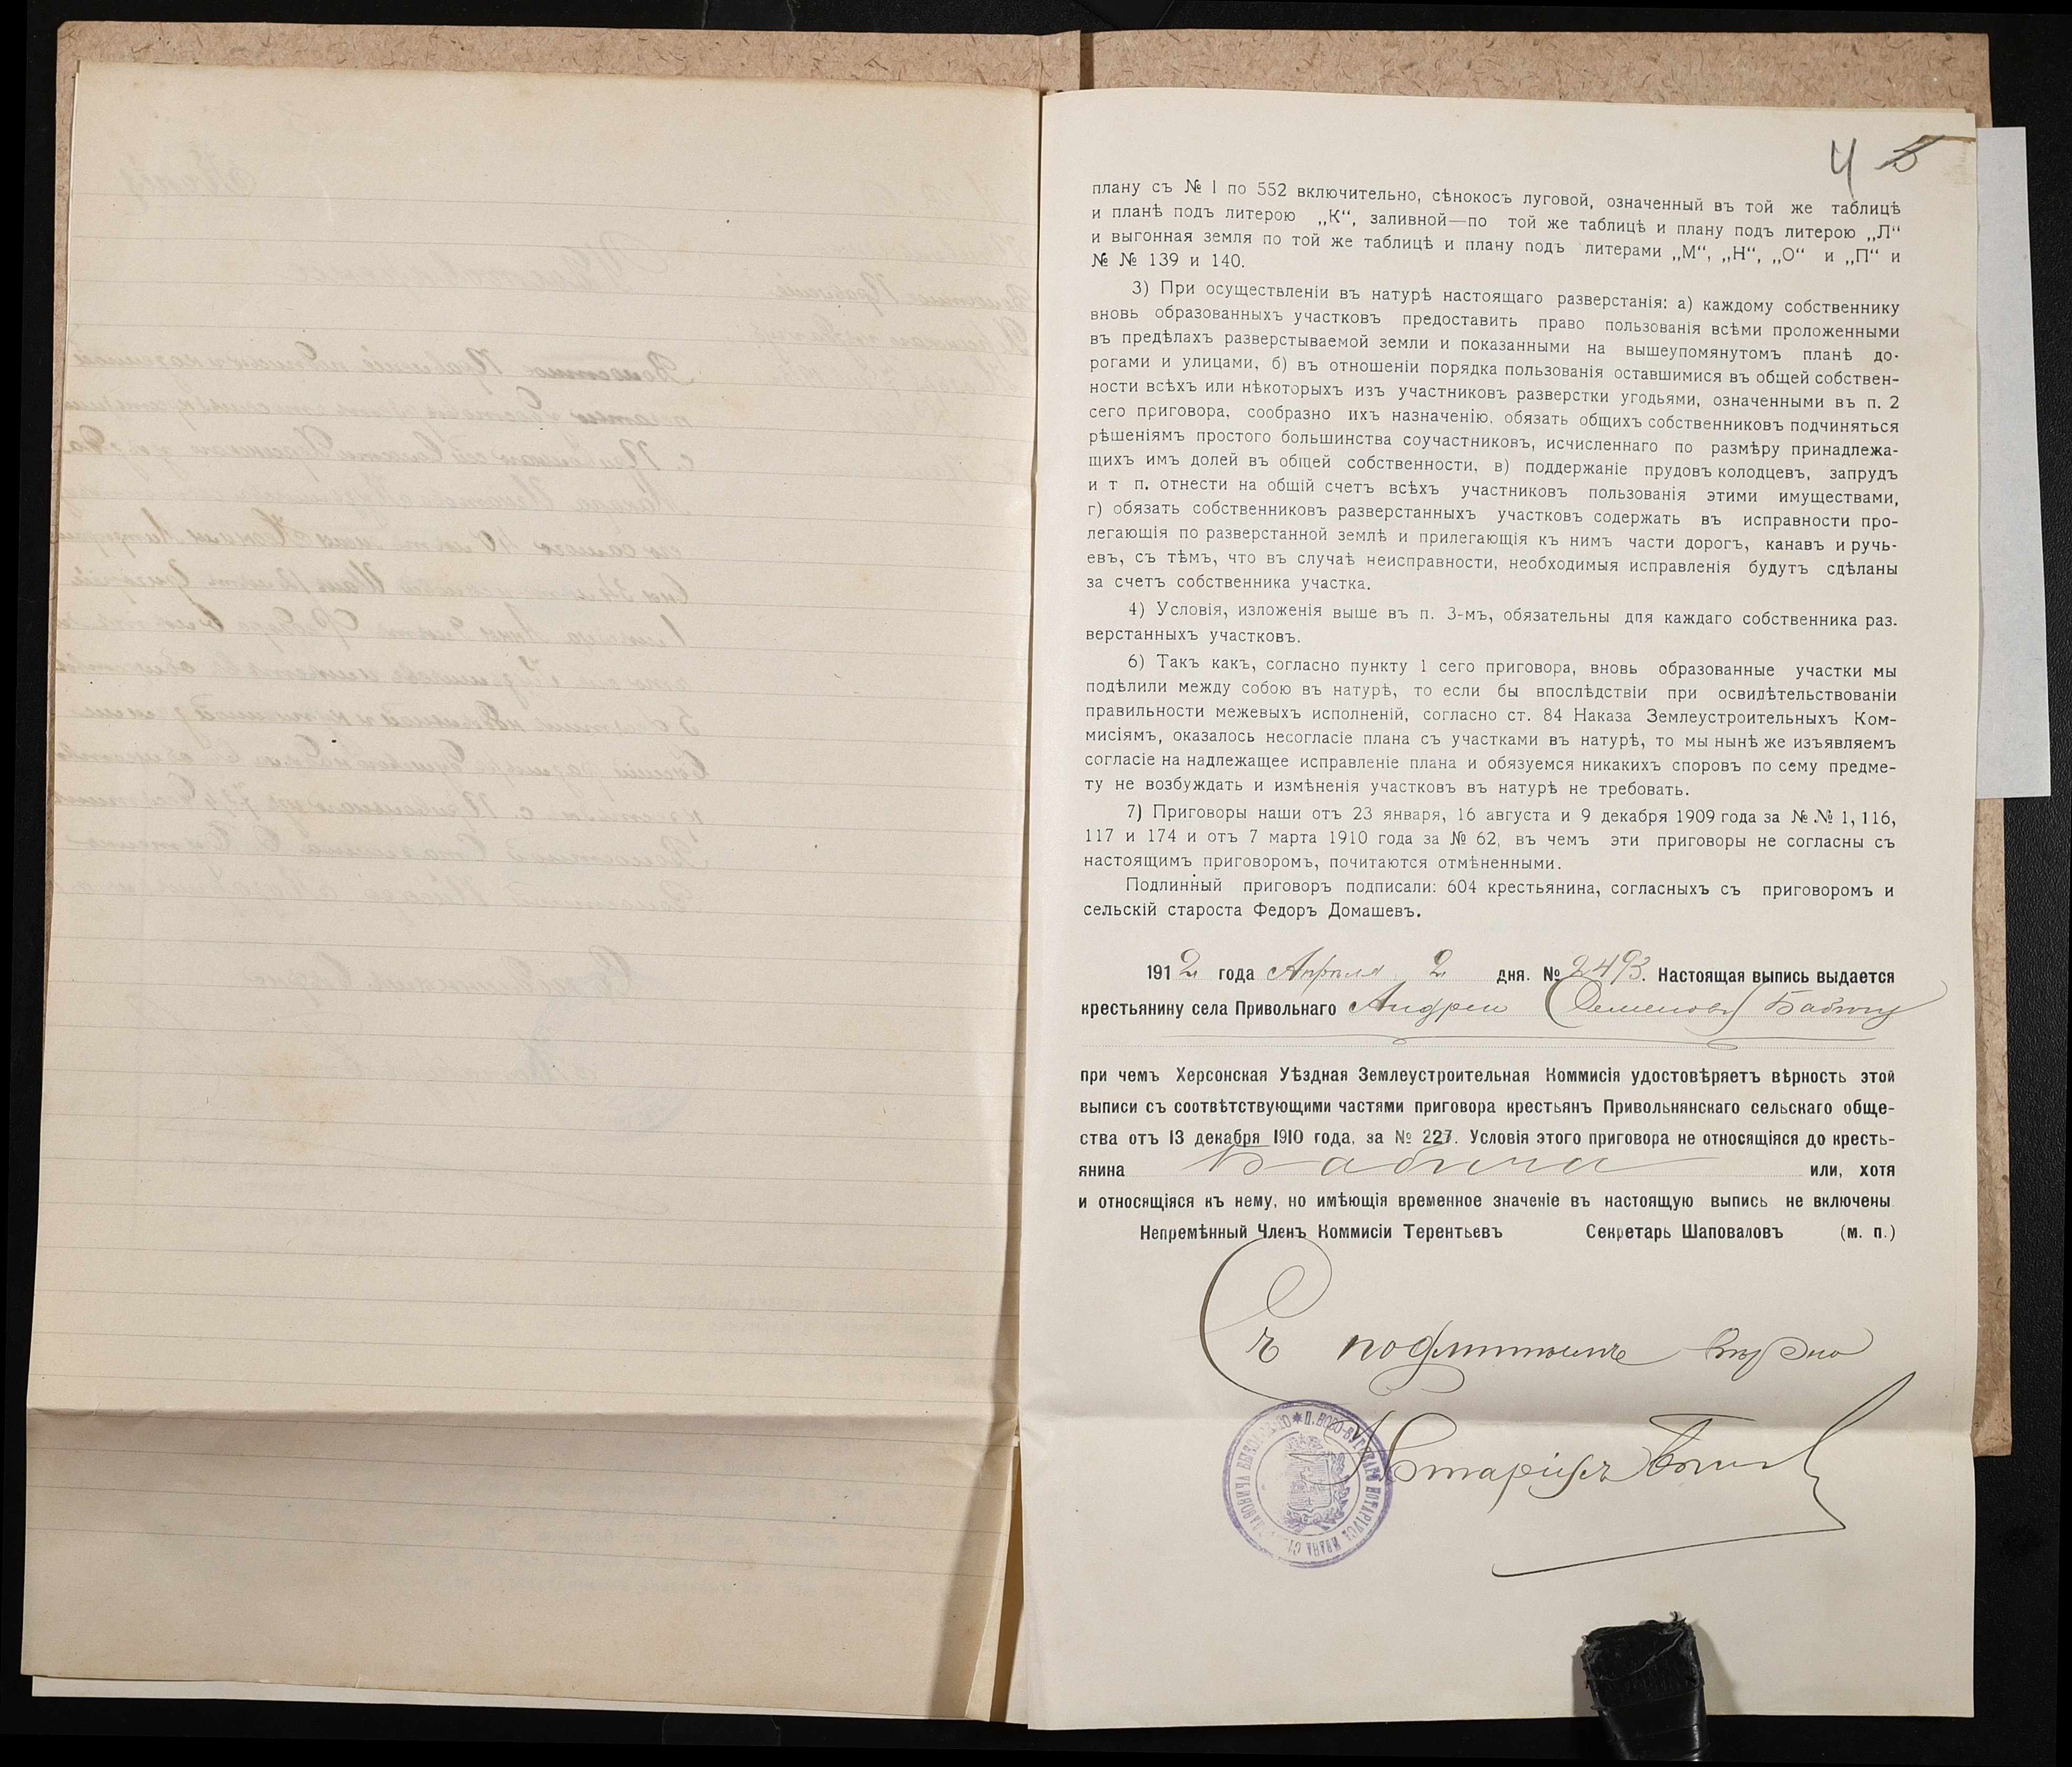 4 5
плану съ № 1 по 552 включительно, сѣнокосъ луговой, означенный въ той же таблицѣ
и планѣ подъ литерою „К“, заливной—по той же таблицѣ и плану подъ литерою „Л“
и выгонная земля по той же таблицѣ и плану подъ литерами „М“, „Н“, „О“ и „П“ и
№ № 139 и 140.
3) При осуществленіи въ натурѣ настоящаго разверстанія: а) каждому собственнику
вновь образованныхъ участковъ предоставить право пользованія всѣми проложенными
въ предѣлахъ разверстываемой земли и показанными на вышеупомянутомъ планѣ до-
рогами и улицами, б) въ отношеніи порядка пользованія оставшимися въ общей собствен-
ности всѣхъ или нѣкоторыхъ изъ участниковъ разверстки угодьями, означенными въ п. 2
сего приговора, сообразно ихъ назначенію, обязать общихъ собственниковъ подчиняться
рѣшеніямъ простого большинства соучастниковъ, исчисленнаго по размѣру принадлежа-
щихъ имъ долей въ общей собственности, в) поддержаніе прудовъ колодцевъ, запрудъ
и т п. отнести на общій счетъ всѣхъ участниковъ пользованія этими имуществами,
г) обязать собственниковъ разверстанныхъ участковъ содержать въ исправности про-
легающія по разверстанной землѣ и прилегающія къ нимъ части дорогъ, канавъ и ручь-
евъ, съ тѣмъ, что въ случаѣ неисправности, необходимыя исправленія будутъ сдѣланы
за счетъ собственника участка.
4) Условія, изложенія выше въ п. 3-мъ, обязательны для каждаго собственника раз.
верстанныхъ участковъ.
6) Такъ какъ, согласно пункту 1 сего приговора, вновь образованные участки мы
подѣлили между собою въ натурѣ, то если бы впослѣдствіи при освидѣтельствованіи
правильности межевыхъ исполненій, согласно ст. 84 Наказа Землеустроительныхъ Ком-
мисіямъ, оказалось несогласіе плана съ участками въ натурѣ, то мы нынѣ же изъявляемъ
согласіе на надлежащее исправленіе плана и обязуемся никакихъ споровъ по сему предме-
ту не возбуждать и измѣненія участковъ въ натурѣ не требовать.
7) Приговоры наши отъ 23 января, 16 августа и 9 декабря 1909 года за № № 1, 116,
117 и 174 и отъ 7 марта 1910 года за № 62, въ чемъ эти приговоры не согласны съ
настоящимъ приговоромъ, почитаются отмѣненными.
Подлинный приговоръ подписали: 604 крестьянина, согласныхъ съ приговоромъ и
сельскій староста Федоръ Домашевъ.
1912 года Апреля 2 дня. № 2493. Настоящая выпись выдается
крестьянину села Привольнаго Андрею Семенову Бабичу
при чемъ Херсонская Уѣздная Землеустроительная Коммисія удостовѣряетъ вѣрность этой
выписи съ соотвѣтствующими частями приговора крестьянъ Привольнянскаго сельскаго обще-
ства отъ 13 декабря 1910 года, за № 227. Условія этого приговора не относящіяся до кресть-
янина Бабича или, хотя
и относящіяся къ нему, но имѣющія временное значеніе въ настоящую выпись не включены
Непремѣнный Членъ Коммисіи Терентьевъ Секретарь Шаповаловъ (м. п.)
Съ подлиннымъ вѣрно
Нотаріусъ